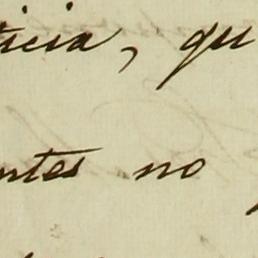 ticia, qu
ntes no